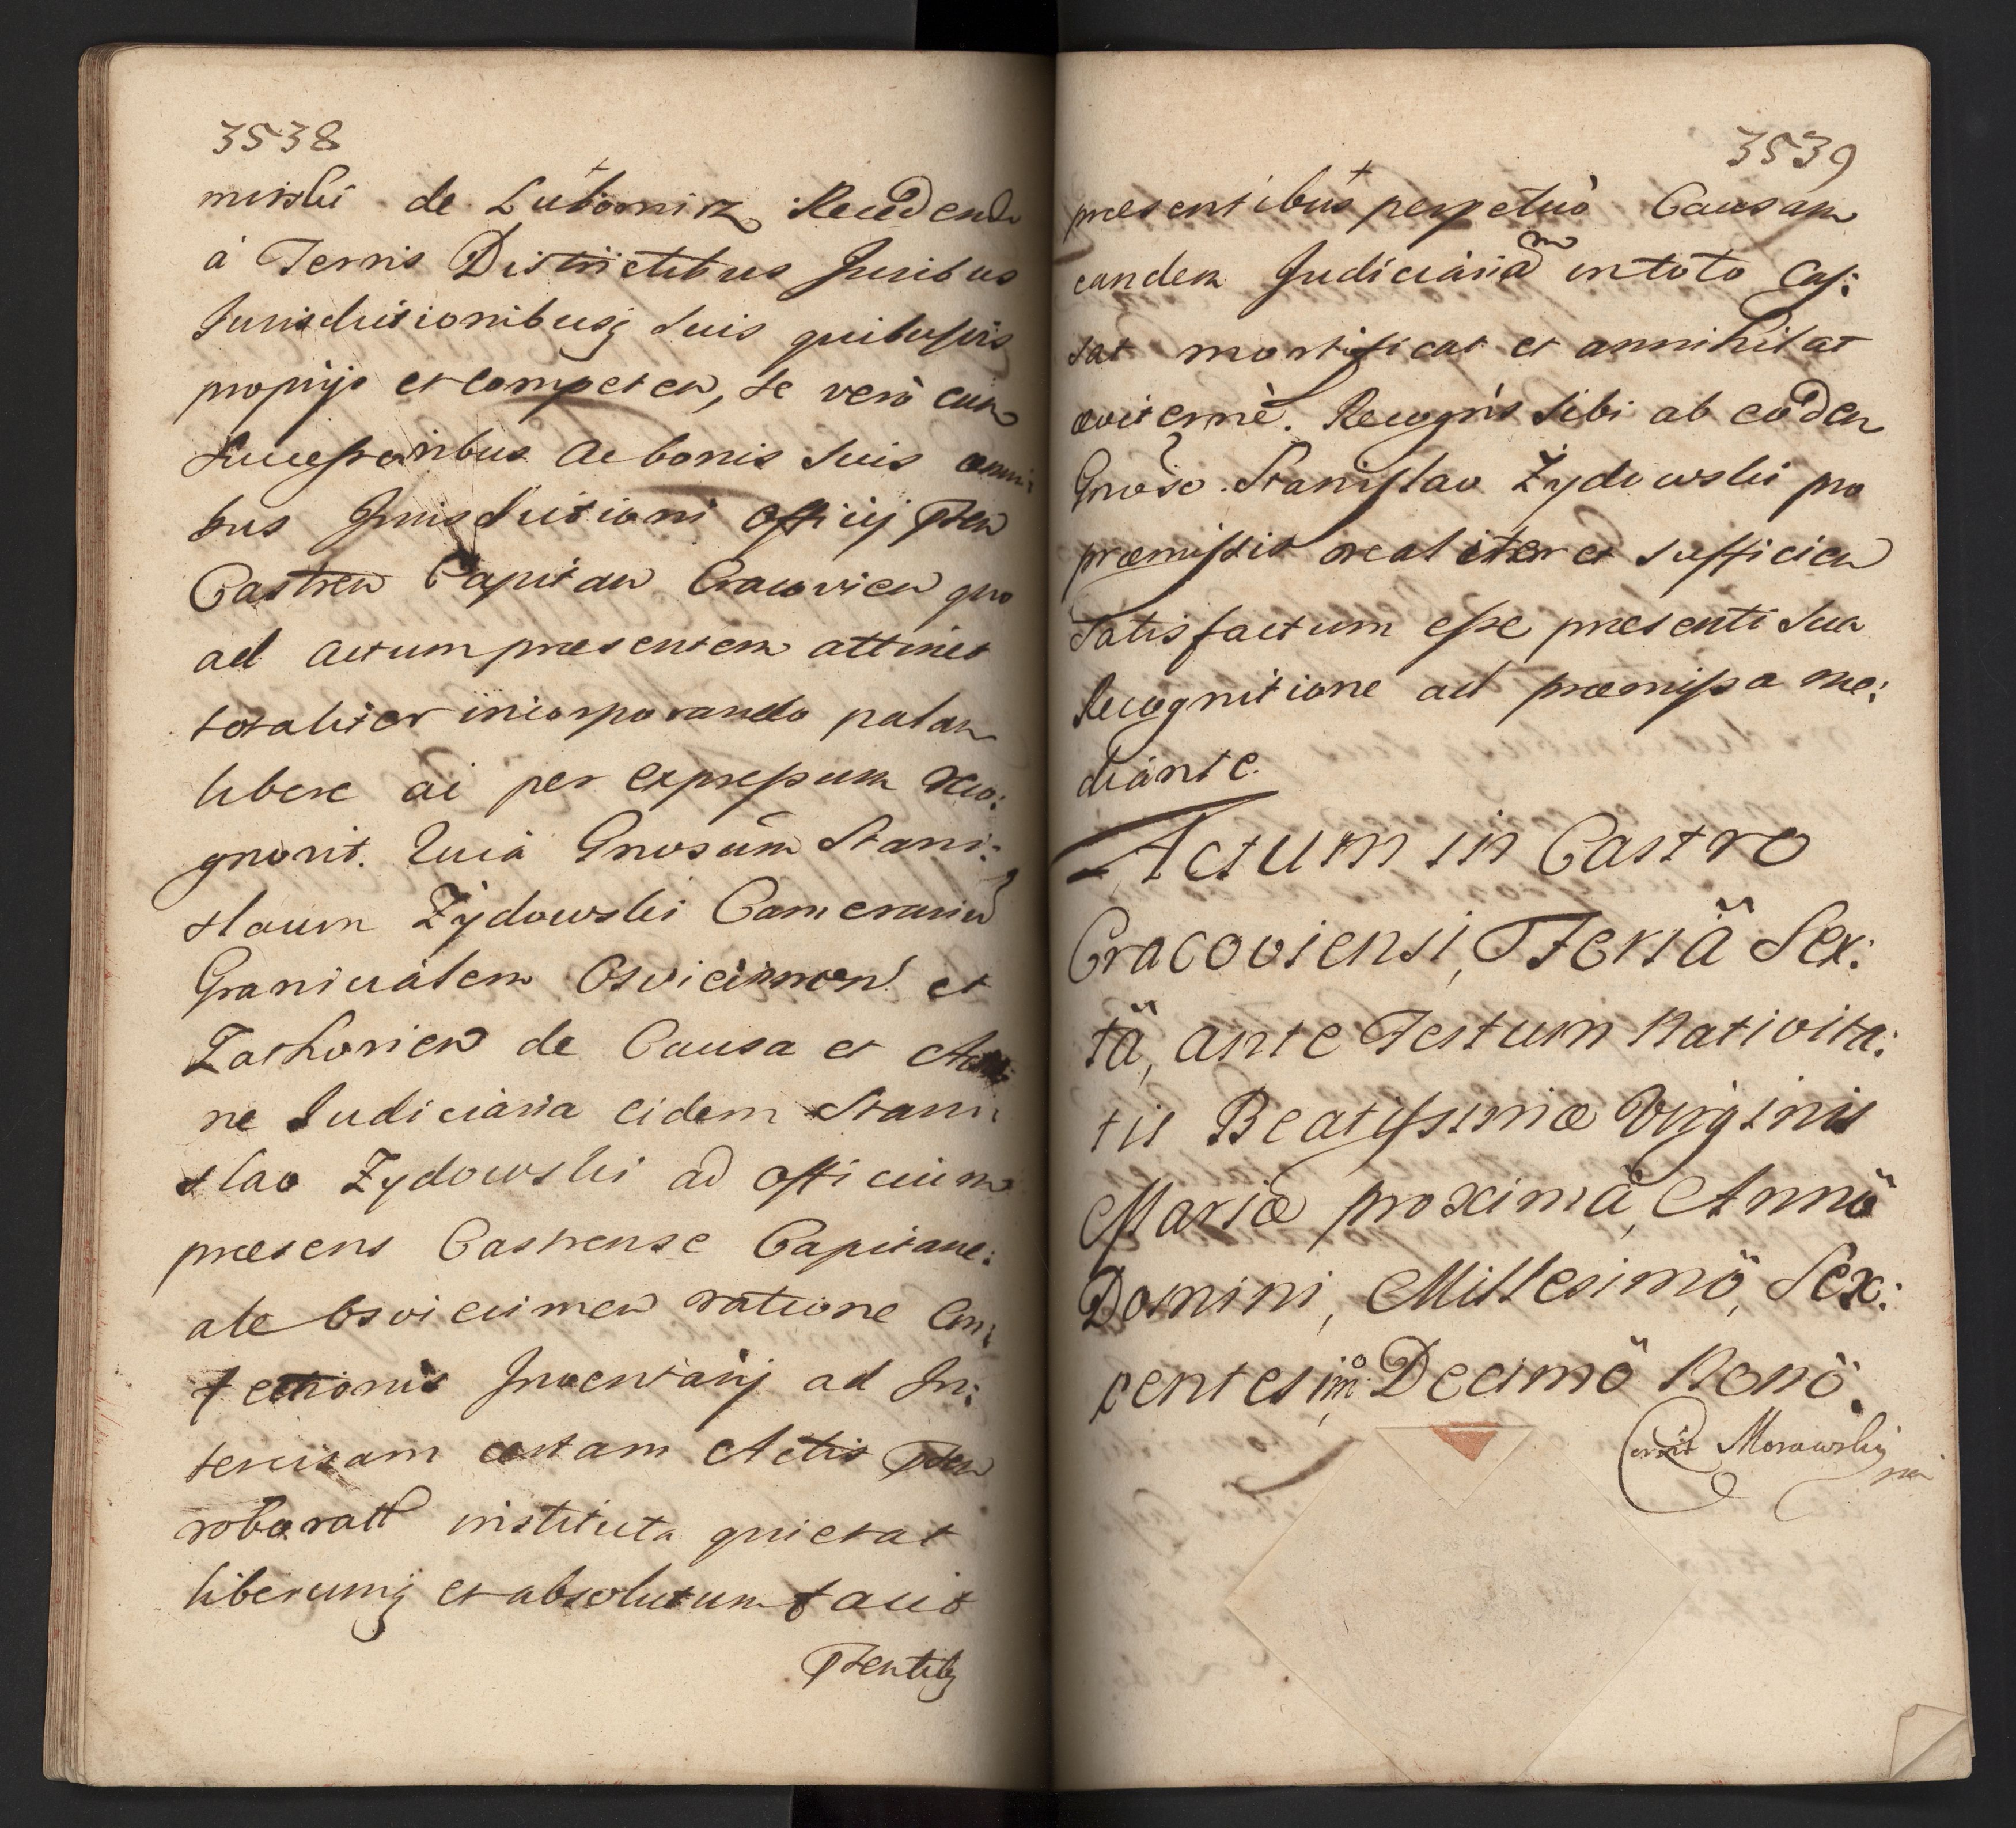 3538
mirski de Lubomirz Recedendo
à Terris Districtibus Juribus
Jurisdictionibusq suis quibusvis
propriis et competen, se verò cum
Successoribus ac bonis suis omni:
bus Jurisdictioni Officij pnten
Castren Capitan Cracovien quo
ad actum praesentem attinet
totaliter incorporando palam
libere ac per expressum reco:
gnovit. Quia Gnosum Stani:
slaum Żydowski Camerarium
Granicialem Osviecimen et
Zathorien de Causa et Actio:
ne Judiciaria eidem Stani:
slao Zydowski ad officium
praesens Castrense Capitane:
ale Osviecimen ratione Con:
fectionis Inventarij ad In:
tercisam certam Actis pnten
roboratt instituta quietat
liberumq et absolutum facit
pntentibq
3539
praesentibus perpetuò Causam
eandem Judiciariam in toto Cas:
sat mortificat et annihilat
aviternè. Recogn's sibi ab eodem
Gnoso Stanislao Żydowski pro
praemissis realiter et sufficien
Satisfactum esse praesenti sua
Recognitione ad praemissa me:
diante.
Actum in Castro
Cracoviensi, Feriä Sex:
tä, ante Festum Nativita:
tis Beatissimæ Virginis
Mariæ proximä, Annö
Domini, Millesimö, Sex:
centesimo Decimö Nonö.
Corrit Morawskij
mp